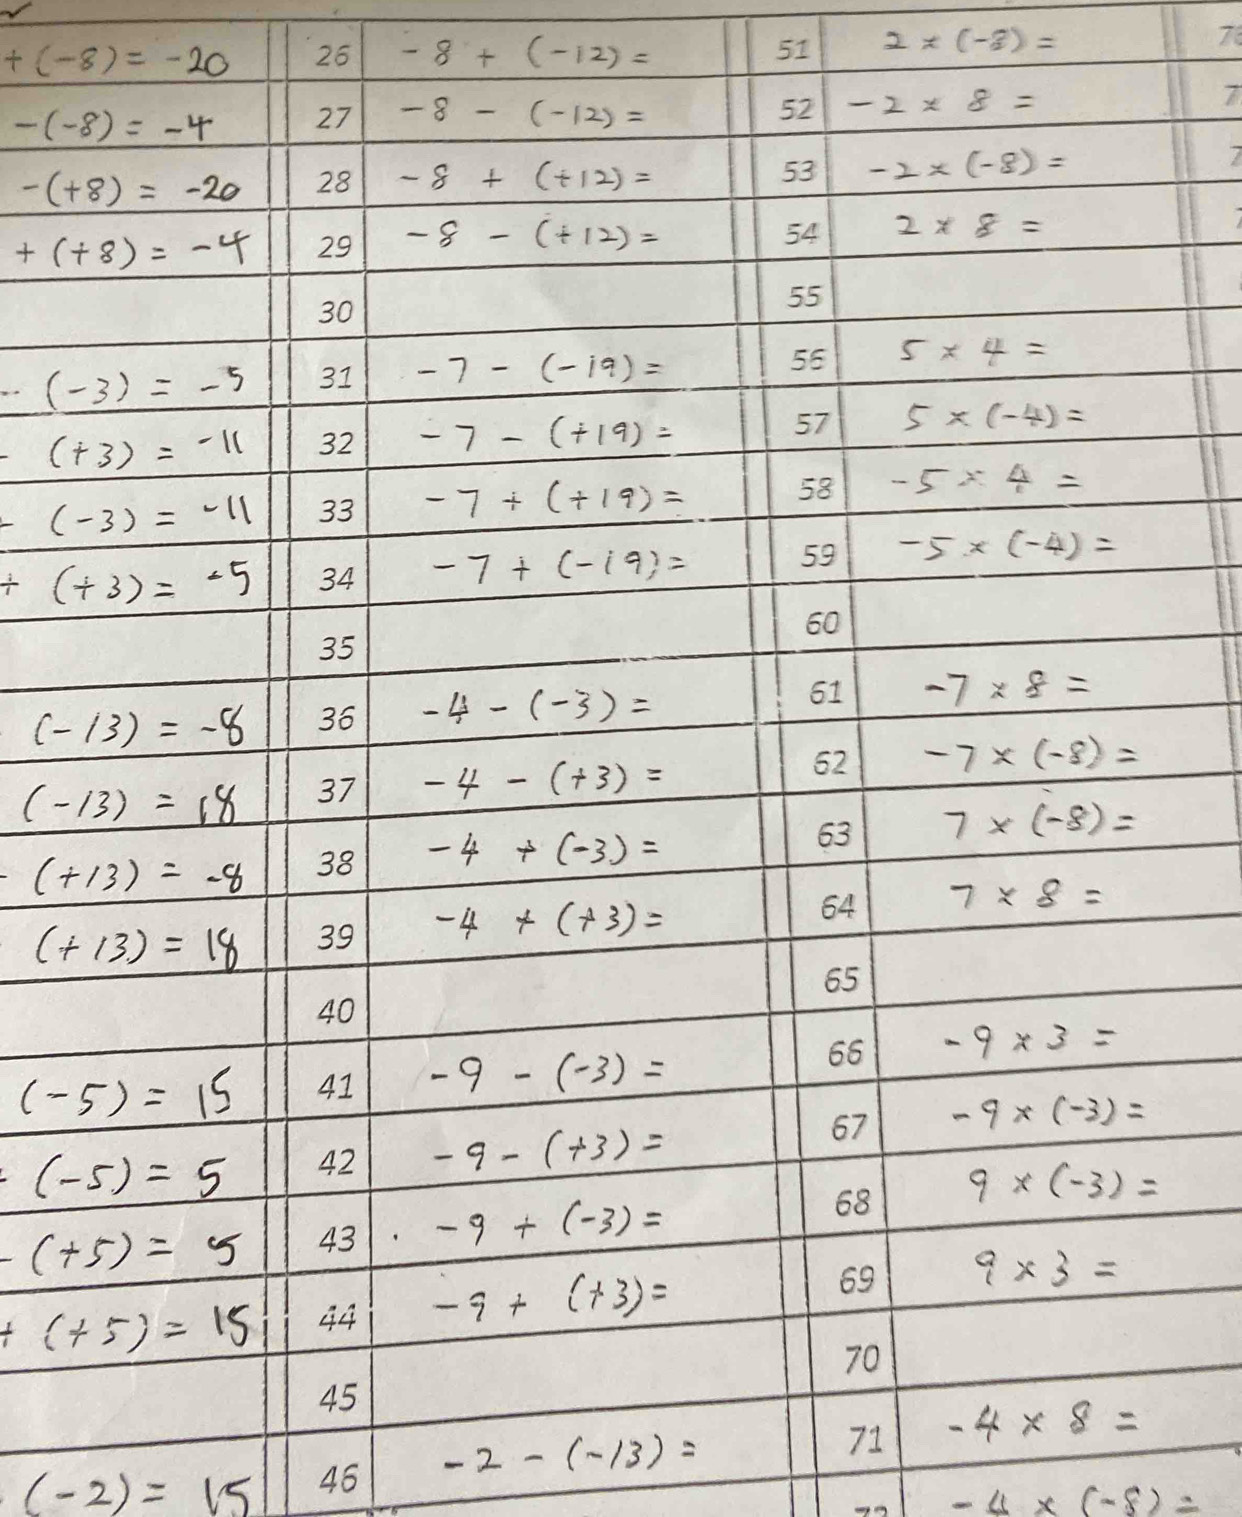 +(-8) = -20 26 -8 + (-12) = 51 2 × (-8) =
-(-8) = -4 27 -8 - (-12) = 52 -2 × 8 =
-(+8) = -20 28 -8 + (+12) = 53 -2 × (-8) =
+ (+8) = -4 29 -8 - (+12) = 54 2 × 8 =
30 55
- (-3) = -5 31 -7 - (-19) = 56 5 × 4 =
- (+3) = -11 32 -7 - (+19) = 57 5 × (-4) =
(-3) = -11 33 -7 + (+19) = 58 -5 × 4 =
+ (+3) = -5 34 -7 + (-19) = 59 -5 × (-4) =
35 60
(-13) = -8 36 -4 - (-3) = 61 -7 × 8 =
(-13) = 18 37 -4 - (+3) = 62 -7 × (-8) =
- (+13) = -8 38 -4 + (-3) = 63 7 × (-8) =
(+13) = 18 39 -4 + (+3) = 64 7 × 8 =
40 65
(-5) = 15 41 -9 - (-3) = 66 -9 × 3 =
(-5) = 5 42 -9 - (+3) = 67 -9 × (-3) =
- (+5) = 5 43 -9 + (-3) = 68 9 × (-3) =
+ (+5) = 15 44 -9 + (+3) = 69 9 × 3 =
45 70
(-2) = 15 46 -2 - (-13) = 71 -4 × 8 =
-4 × (-8) =